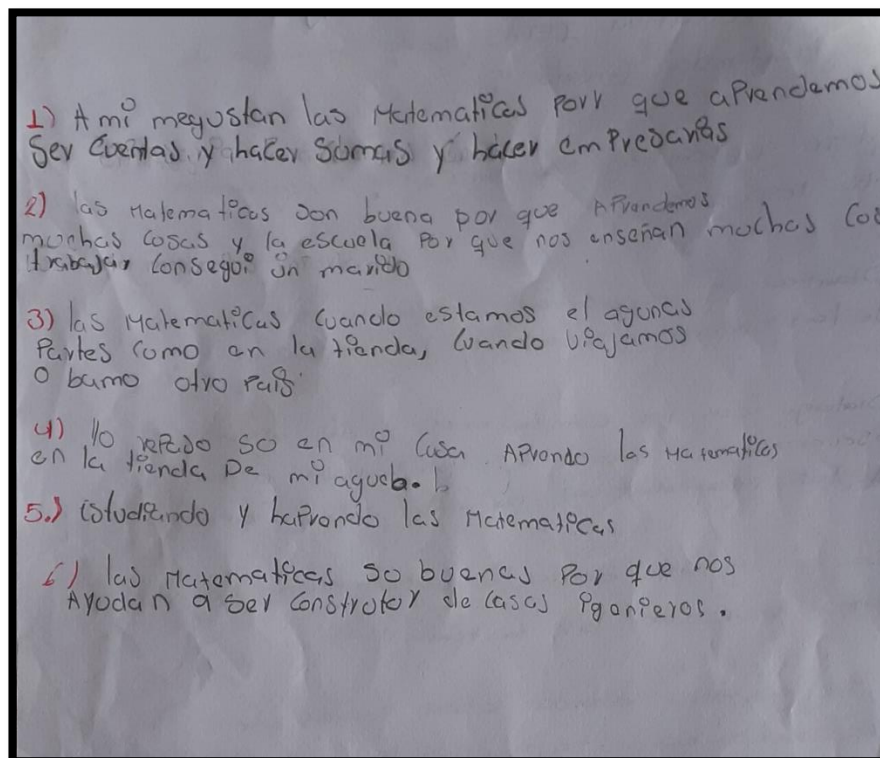 1) A mi megustan las Matematicas Porr que aPrendemos
Ser Cuentas y hacer Sumas y hacer emPresarias
2) las Matematicas son buena por que APrandemos
muchas cosas y la escuela Por que nos enseñan muchas Cos
trabajar Conseguir un marido
3) las Matematicas Cuando estamos el agunas
Partes Como en la tienda, Cuando viajamos
O bamo otro Pais
4) Yo so en mi Casa AProndo las Matematicas
en la tienda De mi agueb.
5.) istudiando y haProndo las Matematicas
6) las Matematicas so buenas Por que nos
Ayudan a ser Constrotor de casas iganieros.